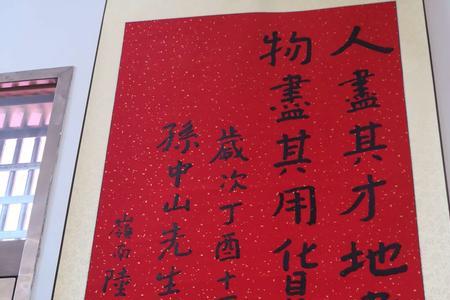 人盡其才地
物盡其用貨
歲次丁酉十
孫中山先生
嶺南陸